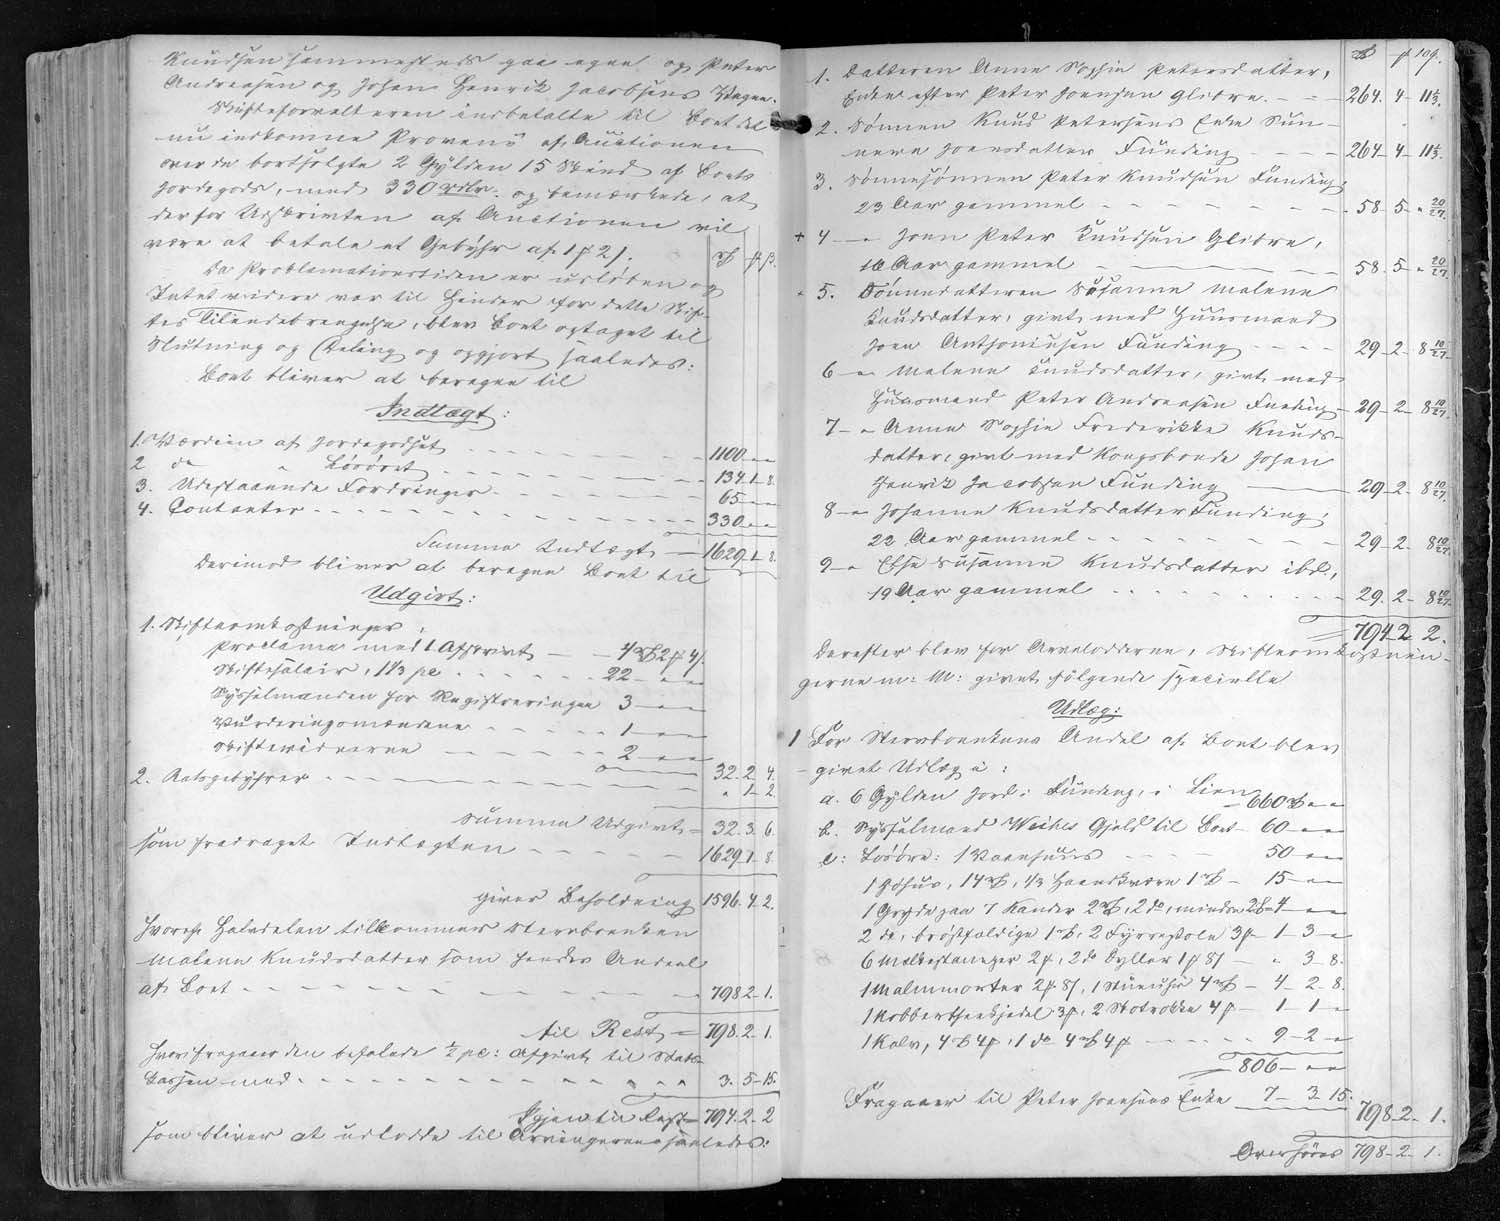 Knudsen sammesteds paa egne og Peter
Andreasen og Johan Henrik Jacobsens Vegne.
Skifteforvalteren indbetalte til Boet det
nu indkomne Provenü af Auctionen
over de bortsolgte 2 Gylden 15 Skind af Boets
Jordegods, med 330 rdlr. og bemærkede, at
der for Udskrivten af Auctionen vil
være at betale et Gebyhr af 1 # 2 /.
Da Proclamationstiden er udløben og
Intet videre var til Hinder for dette Skif-
tes Tilendebringelse, blev Boet optaget til
Slutning og Deling og opgjort saaledes:
Boet bliver at beregne til
Indtægt:
1. Værdien af Jordegodset 1100 " "
2 do " Løsöret 134 - 1 - 8.
3. Udestaaende Fordringer 65 " "
4. Contanter 330 " "
Summa Indtægt 1629 - 1 - 8.
Derimod bliver at beregne Boet til
Udgivt:
1. Skifteomkostninger:
Proclama med 1 Afskrivt 4 rd 2 # 4 /
Skiftesalair, 1 1/3 pc 22 " "
Sysselmanden for Registreringen 3 " "
Vurderingsmændene 1 " "
Skiftevidnerne 2 " "
32. 2 4.
2. " 1 - 2.
Summa Udgivt = 32. 3. 6.
som fradraget Indtægten 1629 - 1 - 8.
giver Beholdning 1596. 4 2.
hvoraf Halvdelen tilkommer Stervboenken
Malene Knudsdatter som hendes Andeel
af Boet 798 2 - 1.
til Rest = 798. 2 - 1.
hvorfragaaer den befalede 1/2 pc: Afgivt til Stats-
kassen med 3. 5 - 15.
Igjen til Rest = 794. 2 - 2
som bliver at udlodde til Arvingerne saaledes:
rd # 109.
1. Datteren Anne Sophie Petersdatter,
Enke efter Peter Joensen Glibre 264. 4 - 11 1/3.
2. Sønnen Knud Petersens Enke Sun-
neve Joensdatter Funding 264 - 4 - 11 1/3.
3. Sønnesønnen Peter Knudsen Funding,
23 Aar gammel 58. 5 - " 20/27.
+ 4 - " Joen Peter Knudsen Glibre,
16 Aar gammel 58. 5 " 20/27.
5. Sønnedatteren Susanne Malene
Knudsdatter, givt med Huusmand
Joen Anthoniusen Funding 29 - 2 - 8 10/27.
6 - " Malene Knudsdatter, givt med
Huusmand Peter Andreasen Funding 29 - 2 - 8 10/27.
7 - " Anna Sophie Frederikke Knuds-
datter, givt med Kongsbonde Johan
Henrik Jacobsen Funding 29 - 2 - 8 10/27.
8 - " Johanne Knudsdatter Funding,
22 Aar gammel 29 - 2 - 8 10/27.
9 - " Else Susanne Knudsdatter ibd.,
19 Aar gammel 29. 2 - 8 10/27.
794 - 2 2.
Derefter blev for Arvelodderne, Skifteomkostnin-
gerne m: M: givet følgende specielle
Udlæg:
1 For Stervboenkens Andel af Boet blev
givet Udlæg i:
a. 6 Gylden Jord i Funding, i Lien 660 rd " "
b. Sysselmand Weihes Gjeld til Boet 60 " "
c: Løsöre: 1 50 " "
1 14 rd, 1/3 Haandkværn 1 rd - 15 " "
1 Gryde paa 7 Kander 2 rd, 2 do, mindre 2 rd = 4 " "
2 do, brøstfældige 1 rd, 2 3 # - 1 - 3 "
6 2 #, 2 do Byller 1 # 8 / - " 3 - 8.
1 Malmmorter 2 # 8 /, 1 4 rd - 4 - 2 - 8.
1 Kobbertheekjedel 3 #, 2 Skotrokke 4 # - 1 - 1 "
1 Kalv, 4 rd 4 #, 1 do 4 rd 4 # 9 - 2 "
806 " "
Fragaaer til Peter Joensens Enke 7 - 3 15.
798 - 2 - 1.
Overføres 798 - 2 - 1.